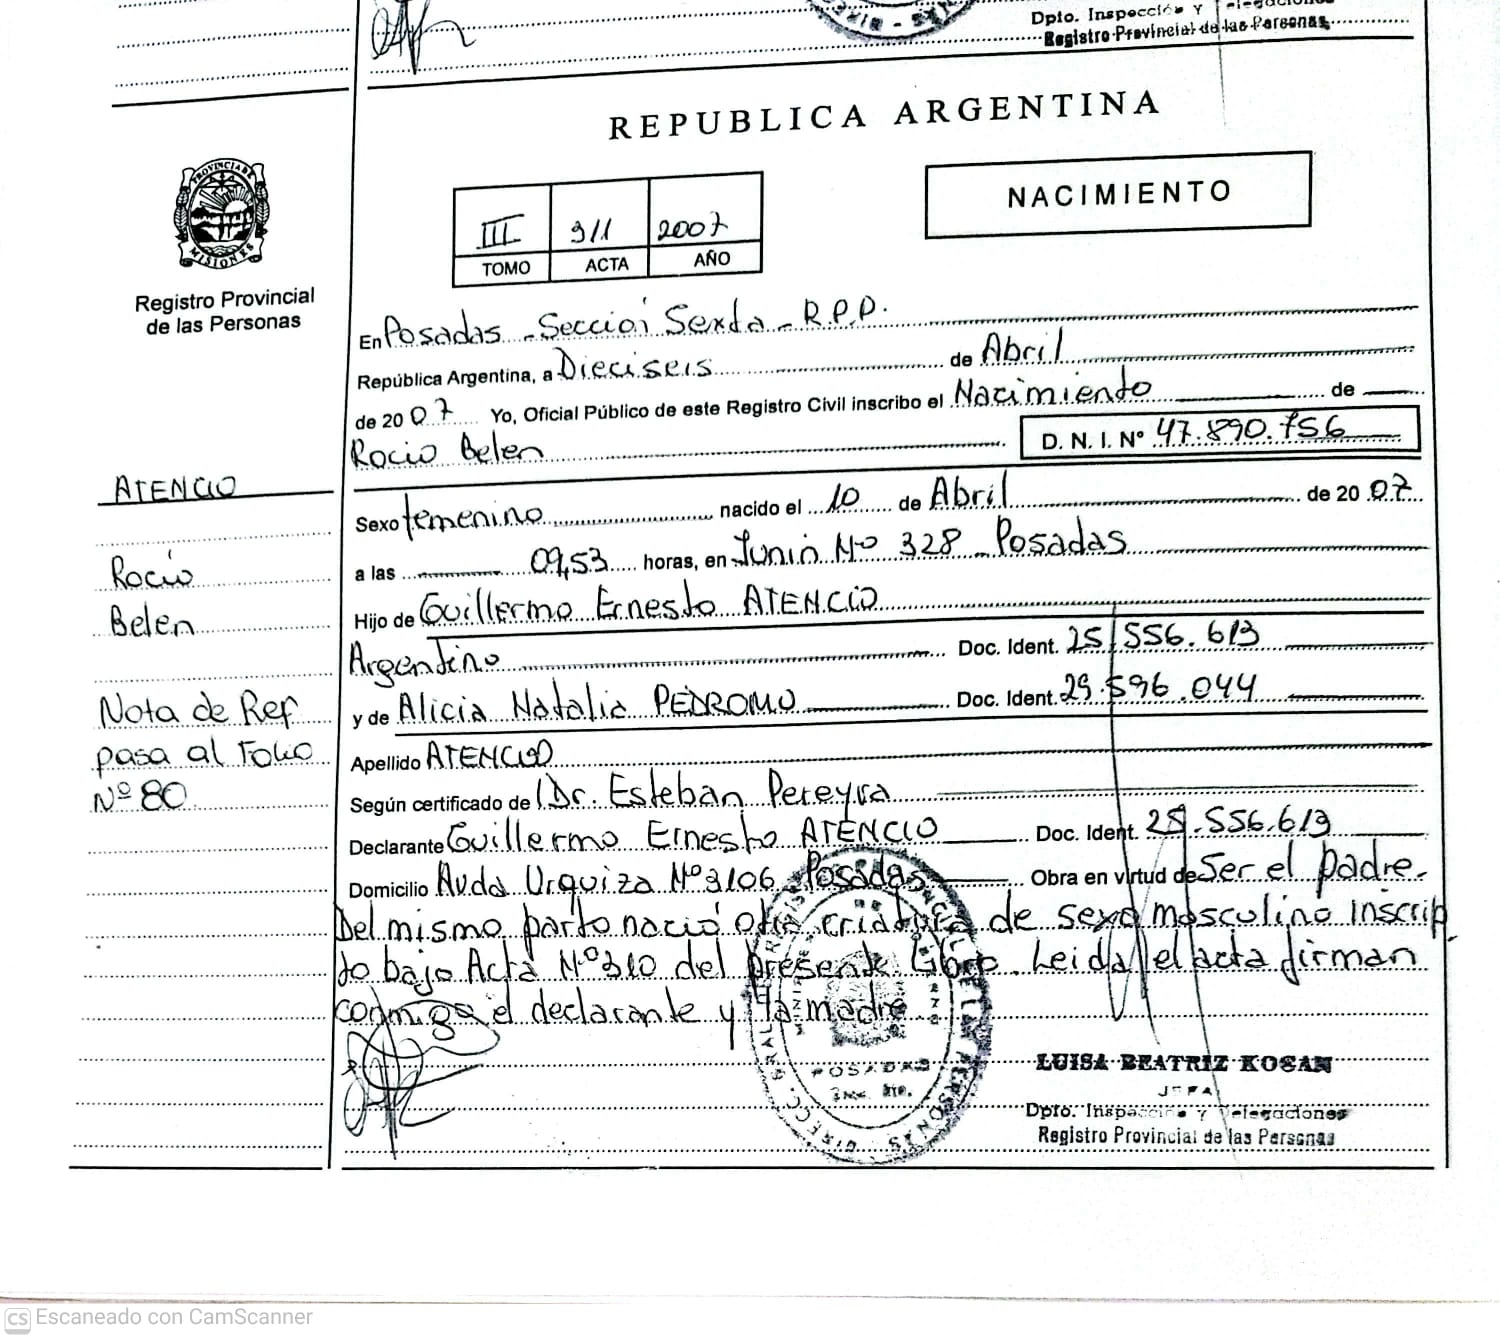 Dpto. Inspección Y Delegaciones
Registro Provincial de las Personas
REPUBLICA ARGENTINA
NACIMIENTO
III 311 2007
TOMO ACTA AÑO
PROVINCIA DE
MISIONES
Registro Provincial
de las Personas
En Posadas - Sección Sexta - R.P.P.
República Argentina, a Dieciseis de Abril
de 2007 Yo, Oficial Público de este Registro Civil inscribo el Nacimiento de
Rocio Belen D. N. I. Nº 47.890.756
ATENCIO
Sexo femenino nacido el 10 de Abril de 2007
a las 09,53 horas, en Junin Nº 328 - Posadas
Rocio
Hijo de Guillermo Ernesto ATENCIO
Belen
Argentino Doc. Ident. 25.556.613
y de Alicia Natalia PEDROMO Doc. Ident. 29.596.044
Nota de Ref
pasa al Folio
Nº 80
Apellido ATENCIO
Según certificado de Dr. Esteban Pereyra
Declarante Guillermo Ernesto ATENCIO Doc. Ident. 25.556.613
Domicilio Avda Urquiza Nº 3106 Posadas Obra en virtud de Ser el padre.
Del mismo parto nació otra criatura de sexo masculino inscrip
to bajo Acta Nº 310 del presente libro. Leida el acta firman
conmigo el declarante y la madre
POSADAS
LUISA BEATRIZ KOSAN
JEFA
Dpto. Inspección Y Delegaciones
Registro Provincial de las Personas
CS Escaneado con CamScanner